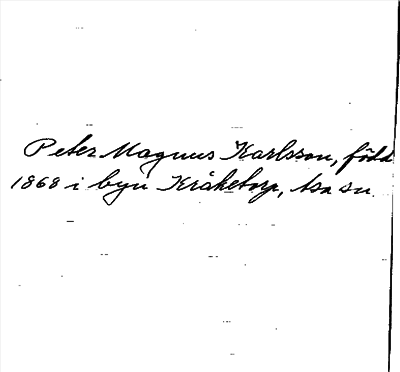 Peter Magnus Karlsson, född
1868 i byn Kråketorp, tsn su